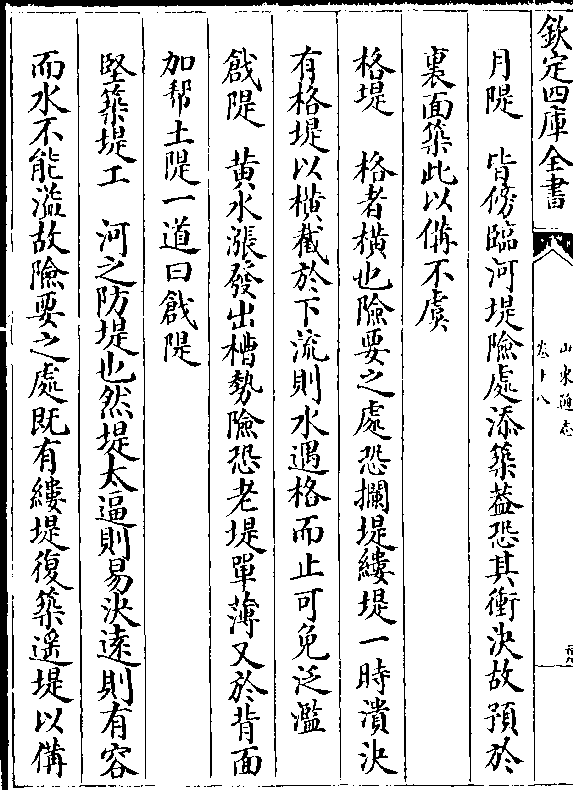 欽定四庫全書
山東通志
卷十八
月隄　皆傍臨河堤險處添築葢恐其衝決故預於
裏面築此以備不虞
格堤　格者橫也險要之處恐攔堤縷堤一時潰決
有格堤以橫截於下流則水遇格而止可免泛濫
戧隄　黄水漲發出槽勢險恐老堤單薄又於背面
加帮土隄一道曰戧隄
堅築堤工　河之防堤也然堤太逼則易決遠則有容
而水不能濫故險要之處既有縷堤復築遥堤以備